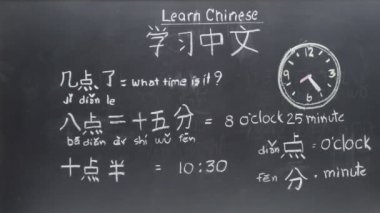 Learn Chinese
学习中文
几点了 = what time is it?
jǐ diǎn le
八点二十五分 = 8 o'clock 25 minute
bā diǎn èr shí wǔ fēn
diǎn 点 = o'clock
十点半 = 10:30
fēn 分 = minute